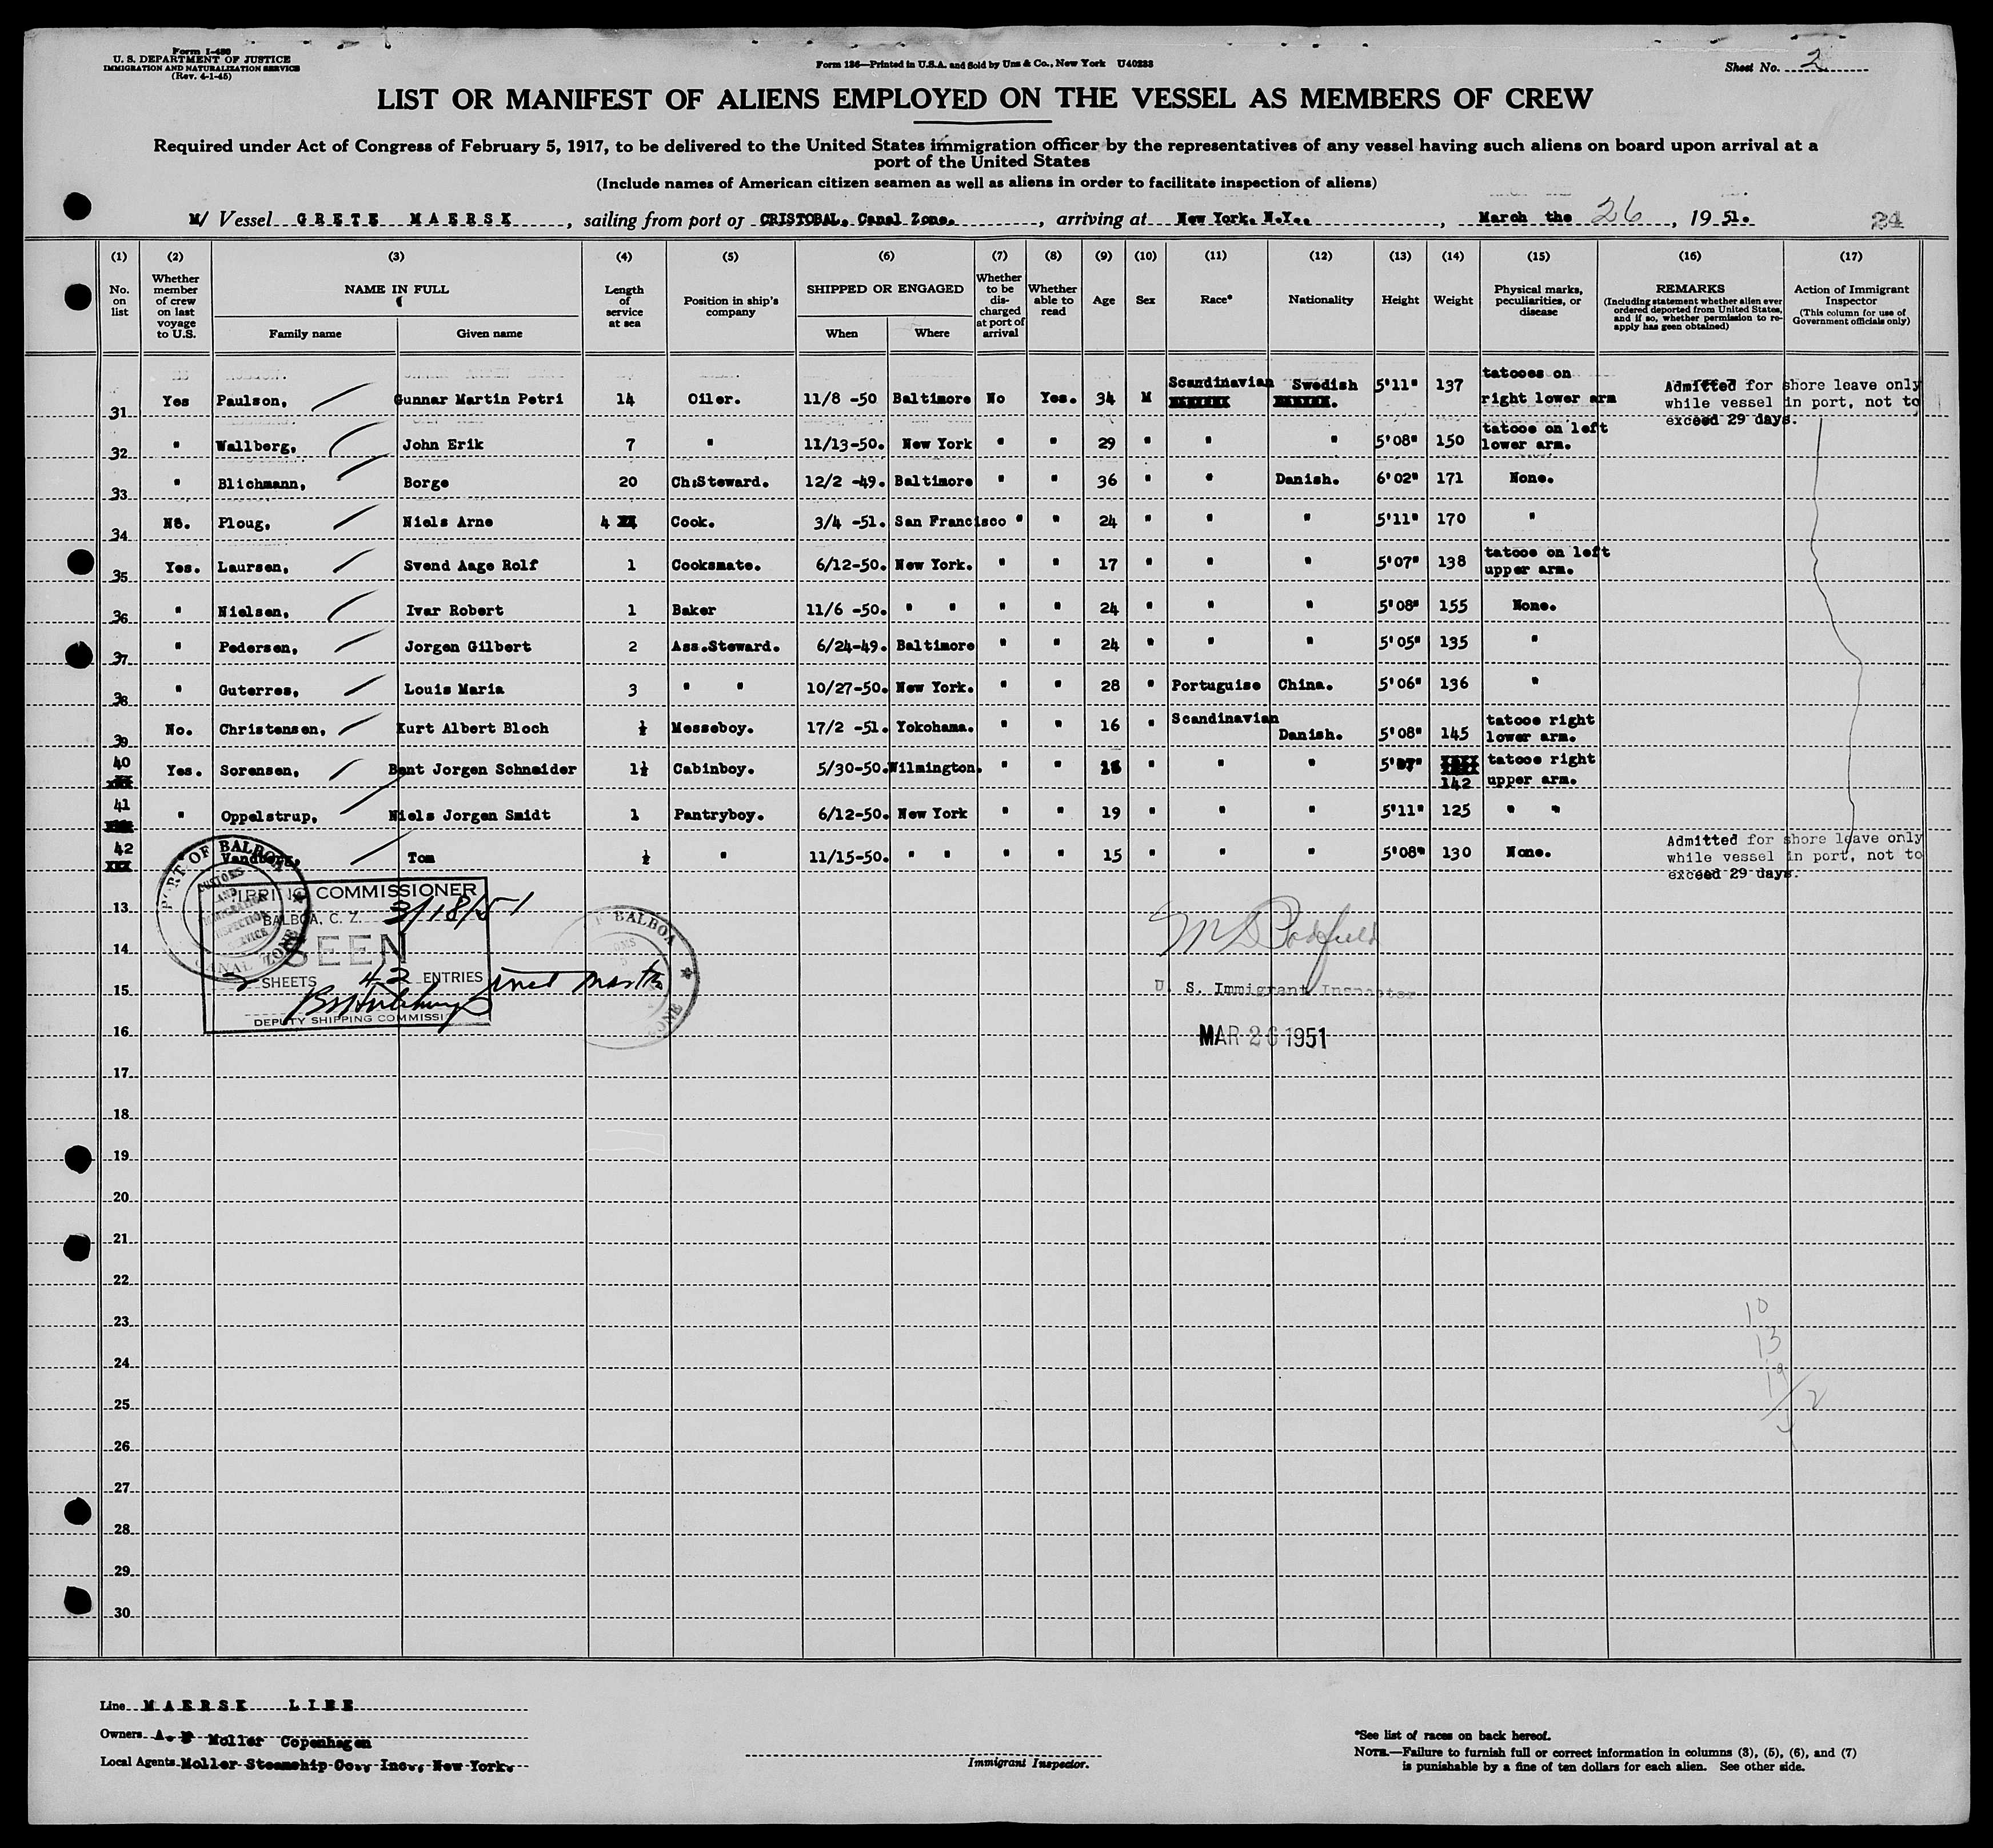 Form I-480
U. S. DEPARTMENT OF JUSTICE
IMMIGRATION AND NATURALIZATION SERVICE
(Rev. 4-1-45)
Form 136—Printed in U.S.A. and Sold by Unz & Co., New York U40233
Sheet No. 2
LIST OR MANIFEST OF ALIENS EMPLOYED ON THE VESSEL AS MEMBERS OF CREW
Required under Act of Congress of February 5, 1917, to be delivered to the United States immigration officer by the representatives of any vessel having such aliens on board upon arrival at a
port of the United States
(Include names of American citizen seamen as well as aliens in order to facilitate inspection of aliens)
M/ Vessel GRETE MAERSK, sailing from port of CRISTOBAL, Canal Zone., arriving at New York. N.Y., March the 26, 19 51. 24
(1) (2) (3) (4) (5) (6) (7) (8) (9) (10) (11) (12) (13) (14) (15) (16) (17)
No. on list
Whether member of crew on last voyage to U.S.
NAME IN FULL
Family name Given name
Length of service at sea
Position in ship's company
SHIPPED OR ENGAGED
When Where
Whether to be discharged at port of arrival
Whether able to read
Age
Sex
Race*
Nationality
Height
Weight
Physical marks, peculiarities, or disease
REMARKS
(Including statement whether alien ever ordered deported from United States, and if so, whether permission to reapply has been obtained)
Action of Immigrant Inspector
(This column for use of Government officials only)
31 Yes Paulson, Gunnar Martin Petri 14 Oiler. 11/8 -50 Baltimore No Yes. 34 M Scandinavian Swedish 5'11" 137 tatooes on right lower arm
Admitted for shore leave only
while vessel in port, not to
exceed 29 days.
32 " Wallberg, John Erik 7 " 11/13-50. New York " " 29 " " " 5'08" 150 tatooe on left lower arm.
33 " Blichmann, Borge 20 Ch:Steward. 12/2 -49. Baltimore " " 36 " " Danish. 6'02" 171 None.
34 No. Ploug, Niels Arne 4 Cook. 3/4 -51. San Francisco " " 24 " " " 5'11" 170 "
35 Yes. Laursen, Svend Aage Rolf 1 Cooksmate. 6/12-50. New York. " " 17 " " " 5'07" 138 tatooe on left upper arm.
36 " Nielsen, Ivar Robert 1 Baker 11/6 -50. " " " " 24 " " " 5'08" 155 None.
37 " Pedersen, Jorgen Gilbert 2 Ass.Steward. 6/24-49. Baltimore " " 24 " " " 5'05" 135 "
38 " Guterres, Louis Maria 3 " " 10/27-50. New York. " " 28 " Portuguise China. 5'06" 136 "
39 No. Christensen, Kurt Albert Bloch ½ Messeboy. 17/2 -51. Yokohama. " " 16 " Scandinavian Danish. 5'08" 145 tatooe right lower arm.
40 Yes. Sorensen, Bent Jorgen Schneider 1½ Cabinboy. 5/30-50. Wilmington. " " " " " 5'07" 142 tatooe right upper arm.
41 " Oppelstrup, Niels Jorgen Smidt 1 Pantryboy. 6/12-50. New York " " 19 " " " 5'11" 125 " "
42 Vandberg, Tom ½ " 11/15-50. " " " " 15 " " " 5'08" 130 None.
Admitted for shore leave only
while vessel in port, not to
exceed 29 days.
PORT OF BALBOA
CUSTOMS AND IMMIGRATION INSPECTION SERVICE
CANAL ZONE
SHIPPING COMMISSIONER
BALBOA, C. Z. 3/18/51
SEEN
2 SHEETS 42 ENTRIES incl master
DEPUTY SHIPPING COMMISSI
F BALBOA
ONE
U. S. Immigrant Inspector
MAR 26 1951
13
14
15
16
17
18
19
20
21
22
23
24
25
26
27
28
29
30
10
13
19
2
Line MAERSK LINE
Owners A. P Moller Copenhagen
Local Agents Moller Steamship Co., Inc., New York.
Immigrant Inspector.
*See list of races on back hereof.
NOTE.—Failure to furnish full or correct information in columns (3), (5), (6), and (7)
is punishable by a fine of ten dollars for each alien. See other side.